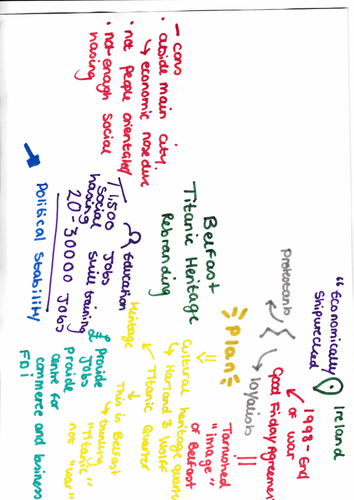 Ireland
"Economically
Shipwrecked
1998 - End
of war
Good Friday Agreement
Protestants
loyalists
Tarnished
"image"
of Belfast
Plan
Belfast
Titanic Heritage
Rebranding
Cultural heritage quarter
↳ Harland & Wolff
Titanic Quarter
Heritage
This is Belfast
↳ Owning
"Titanic"
not "war"
Education
1500 Jobs
Social Skill training
housing
20-30000 Jobs
£ Provide
Jobs
Provide
centre for
commerce and business
FDI
Political Stability
- cons
• aside main city.
↳ economic nosedive
• not people orientated
• not enough social
housing